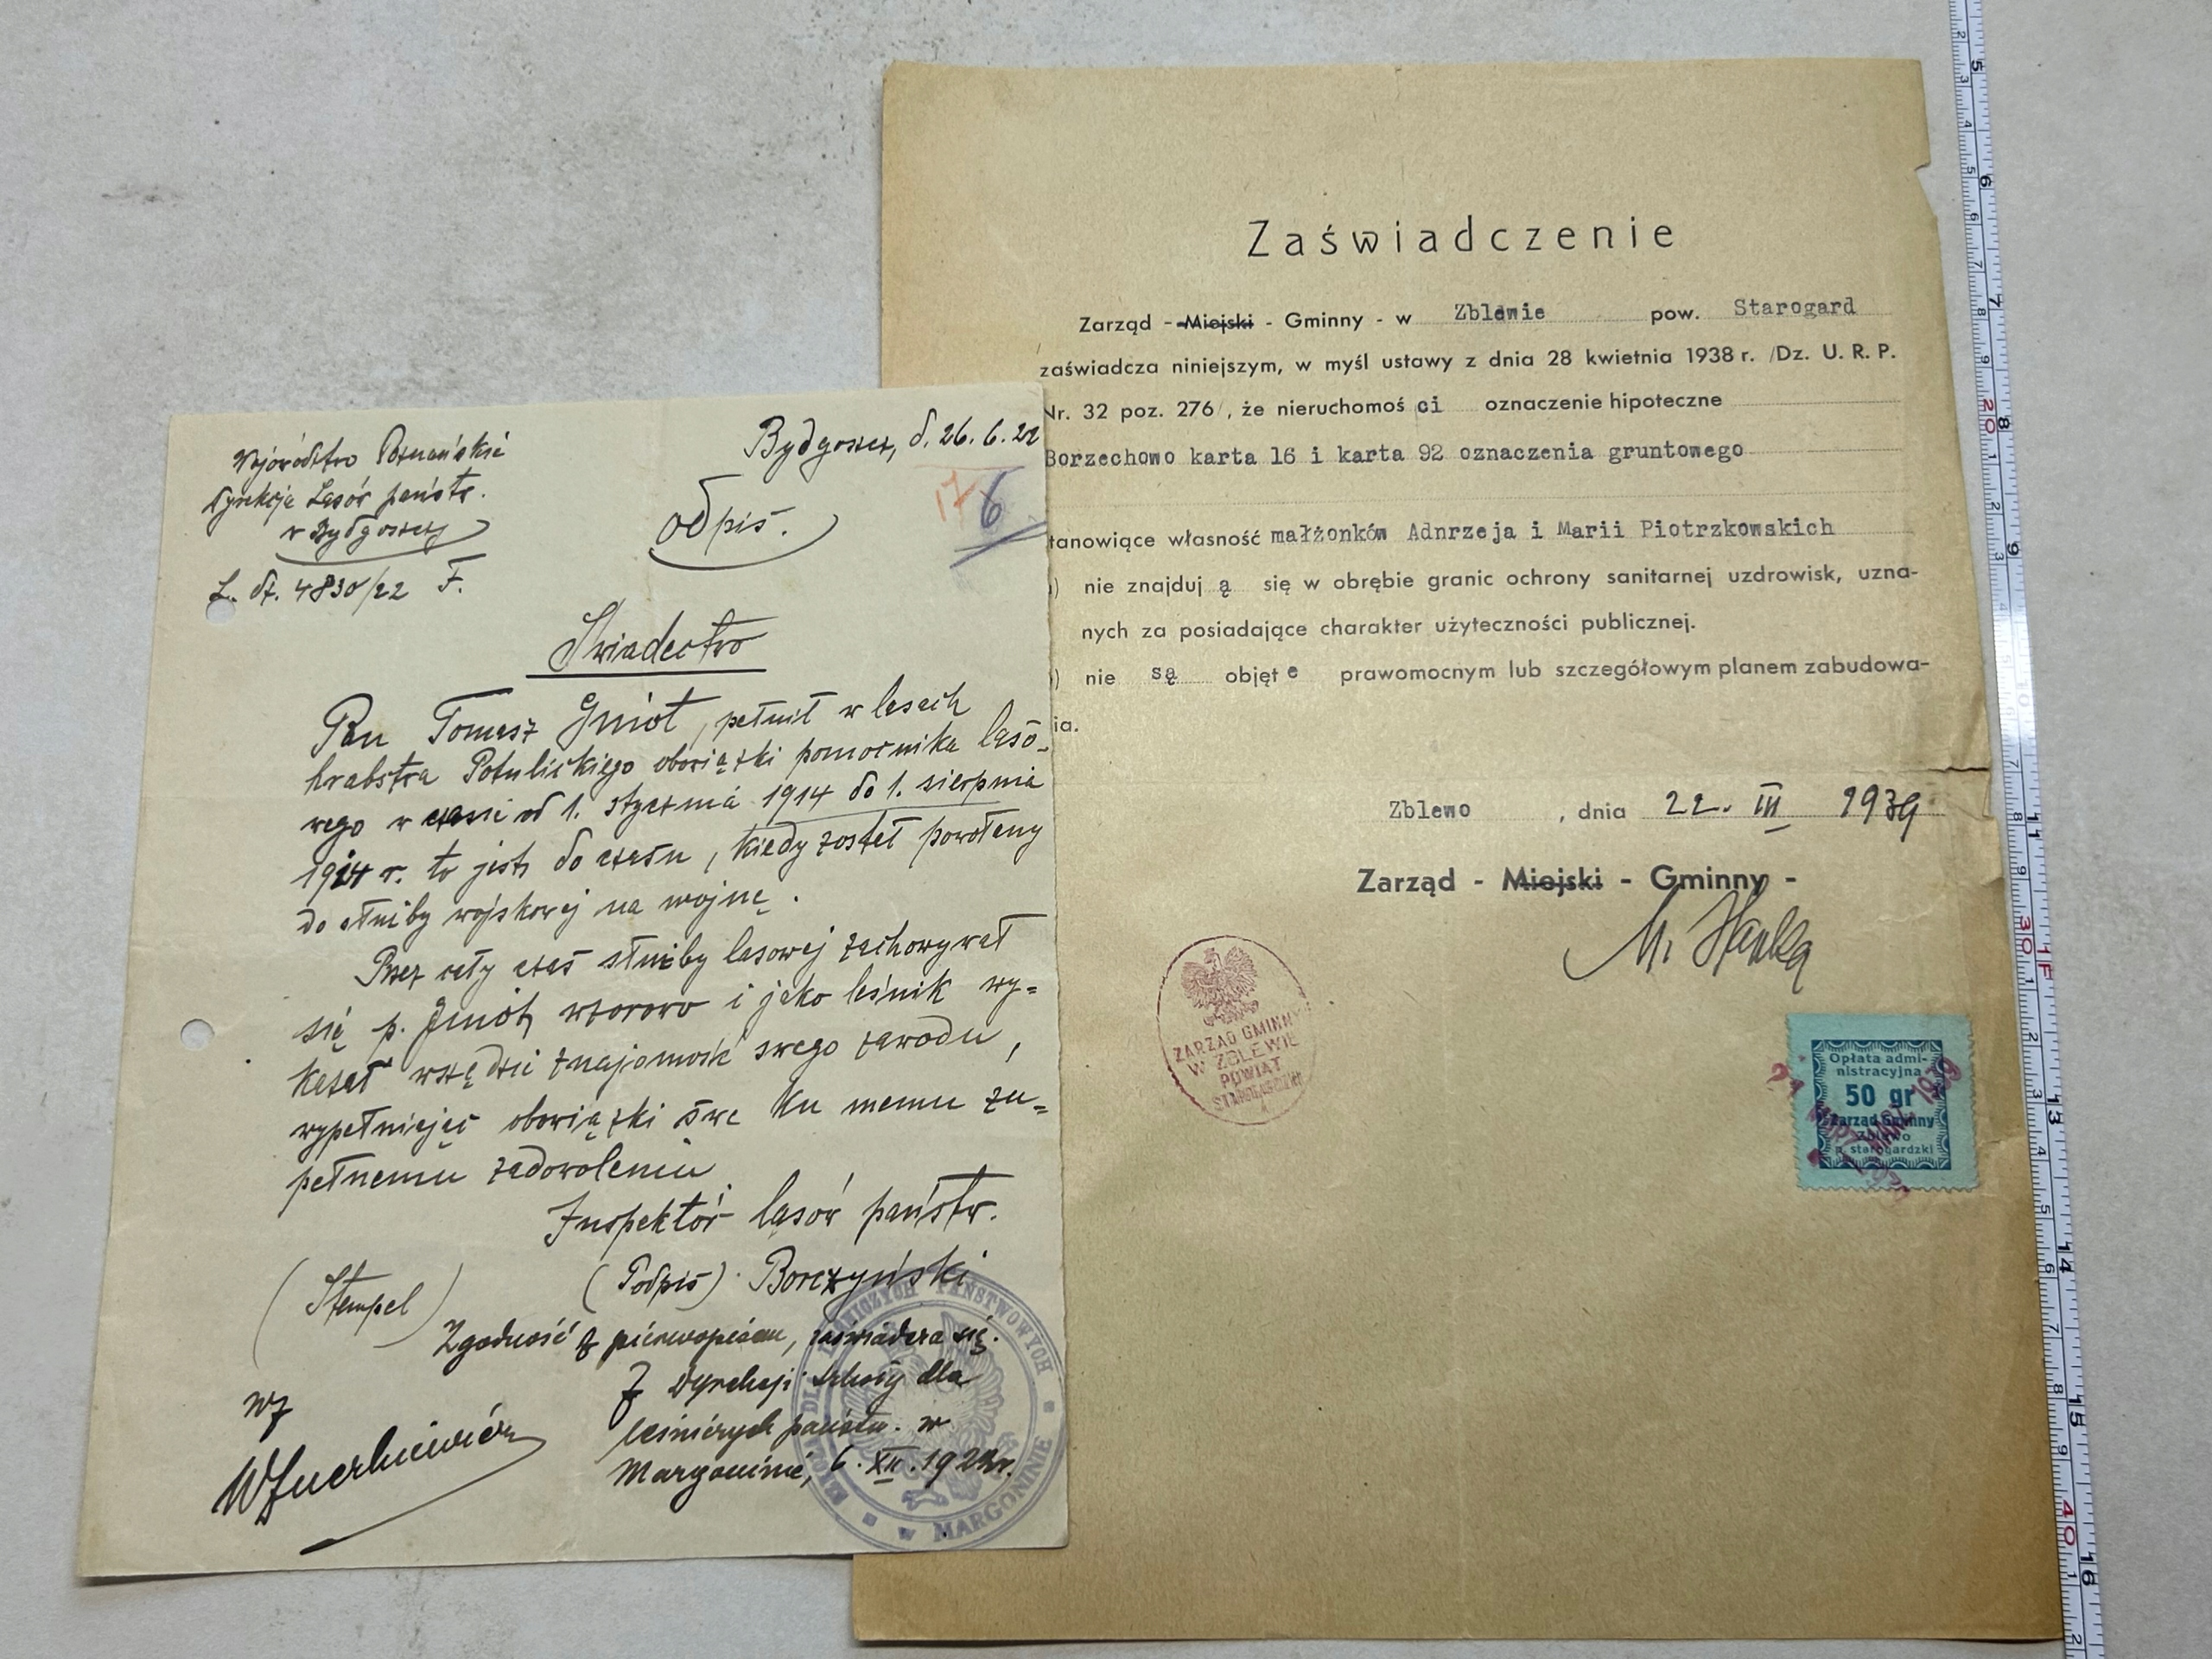 Województwo Poznańskie
Dyrekcja Lasów państw.
w Bydgoszczy
L. dz. 4830/22 F.
Bydgoszcz, d. 26. 6. 22
odpis.
17 6
Świadectwo
Pan Tomasz Gniot, pełnił w lasach
hrabstwa Potulickiego obowiązki pomocnika laso-
wego w czasie od 1. stycznia 1914 do 1. sierpnia
1914 r. to jest do czasu, kiedy został powołany
do służby wojskowej na wojnę.
Przez cały czas służby lasowej zachowywał
się p. Gniot wzorowo i jako leśnik wy=
kazał wszędzie znajomość swego zawodu,
wypełniając obowiązki swe ku memu zu=
pełnemu zadowoleniu.
Inspektor lasów państw.
(Stempel) (Podpis) Borczyński
Zgodność z pierwopisem, zaświadcza się.
Z Dyrekcji Szkoły dla
leśniczych państw. w
Margoninie, 6. XII. 192 r.
wz
LEŚNICZYCH PAŃSTWOWYCH
w MARGONINIE
Zaświadczenie
Zarząd - Miejski - Gminny - w Zblewie pow. Starogard
zaświadcza niniejszym, w myśl ustawy z dnia 28 kwietnia 1938 r. /Dz. U. R. P.
Nr. 32 poz. 276/, że nieruchomości oznaczenie hipoteczne
Borzechowo karta 16 i karta 92 oznaczenia gruntowego
tanowiące własność małżonków Adnrzeja i Marii Piotrzkowskich
) nie znajdują się w obrębie granic ochrony sanitarnej uzdrowisk, uzna-
nych za posiadające charakter użyteczności publicznej.
) nie są objęte prawomocnym lub szczegółowym planem zabudowa-
ia.
Zblewo, dnia 22. III 1939
Zarząd - Miejski - Gminny -
ZARZĄD GMINNY
W ZBLEWIE
POWIAT
STAROGARDZKI
Opłata admi-
nistracyjna
50 gr
Zarząd Gminny
Zblewo
p. starogardzki